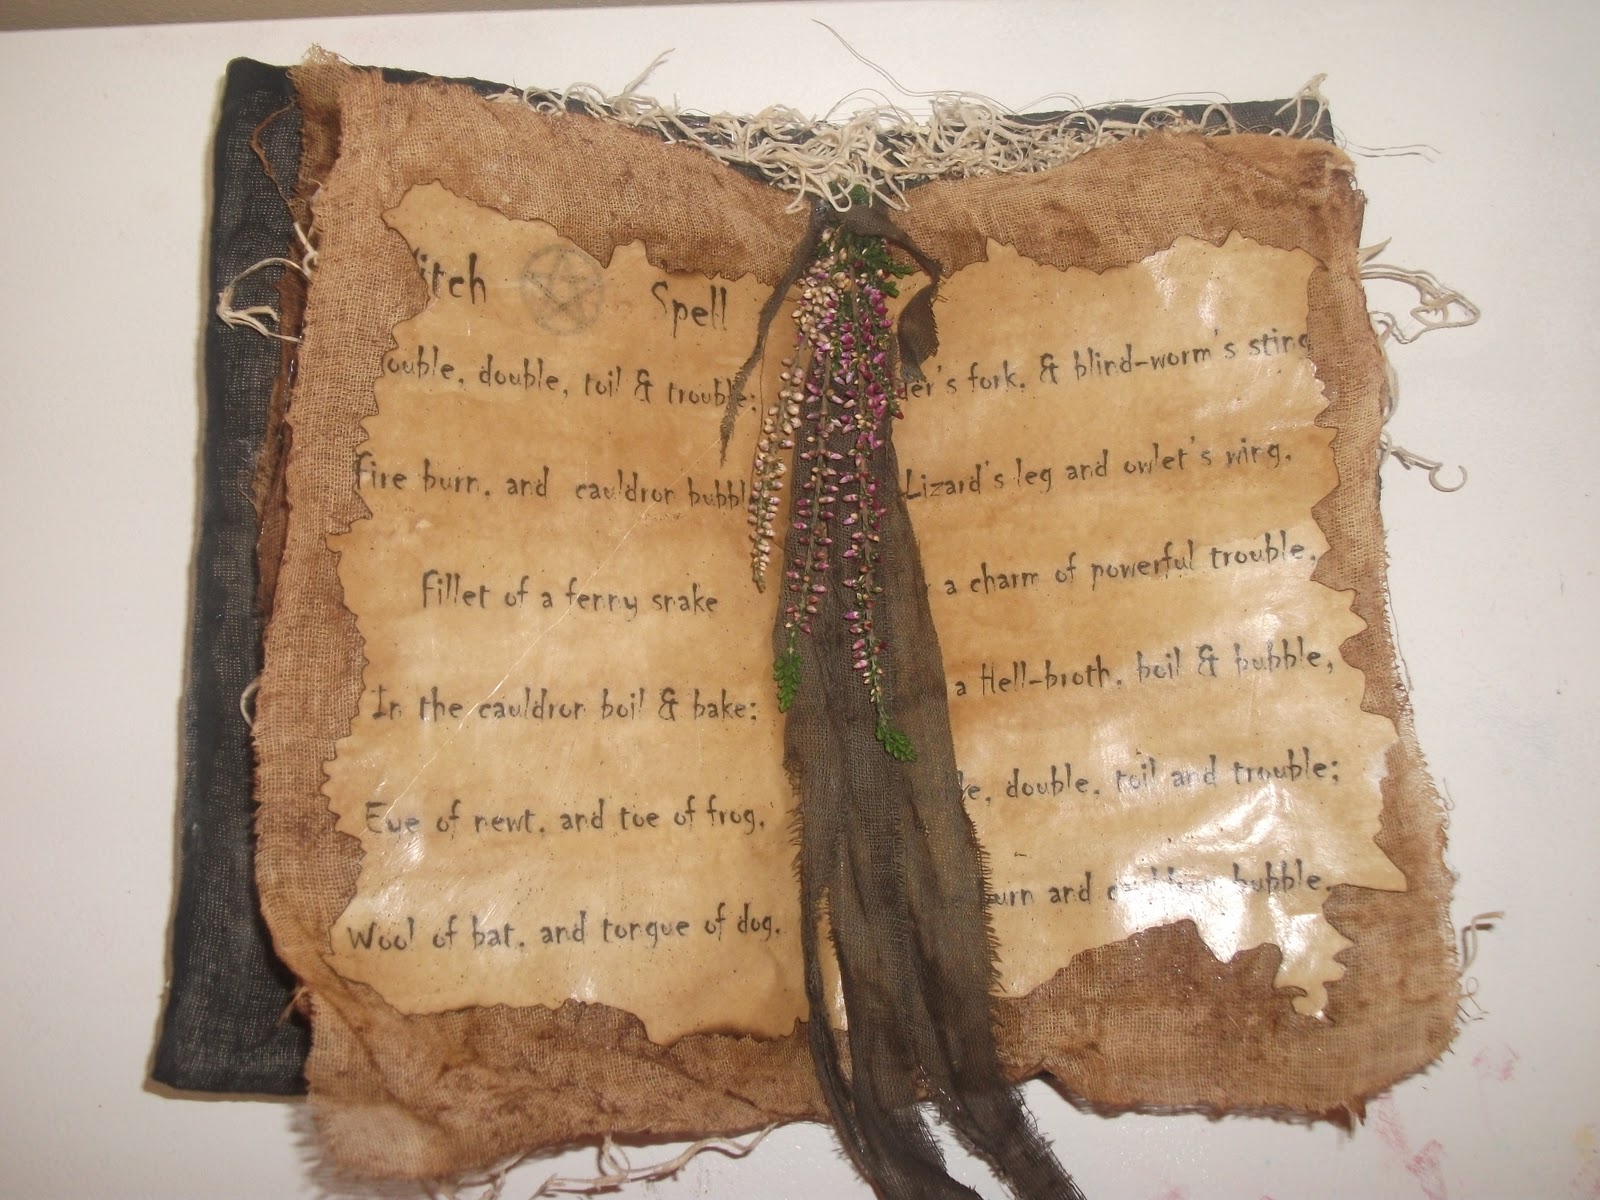 Witch Spell
ouble, double, toil & trouble;
Fire burn, and cauldron bubbl
Fillet of a fenny snake
In the cauldron boil & bake;
Eye of newt, and toe of frog,
Wool of bat, and tongue of dog,
der's fork, & blind-worm's sting
Lizard's leg and owlet's wing,
a charm of powerful trouble,
a Hell-broth, boil & bubble,
le, double, toil and trouble;
burn and cauldron bubble.